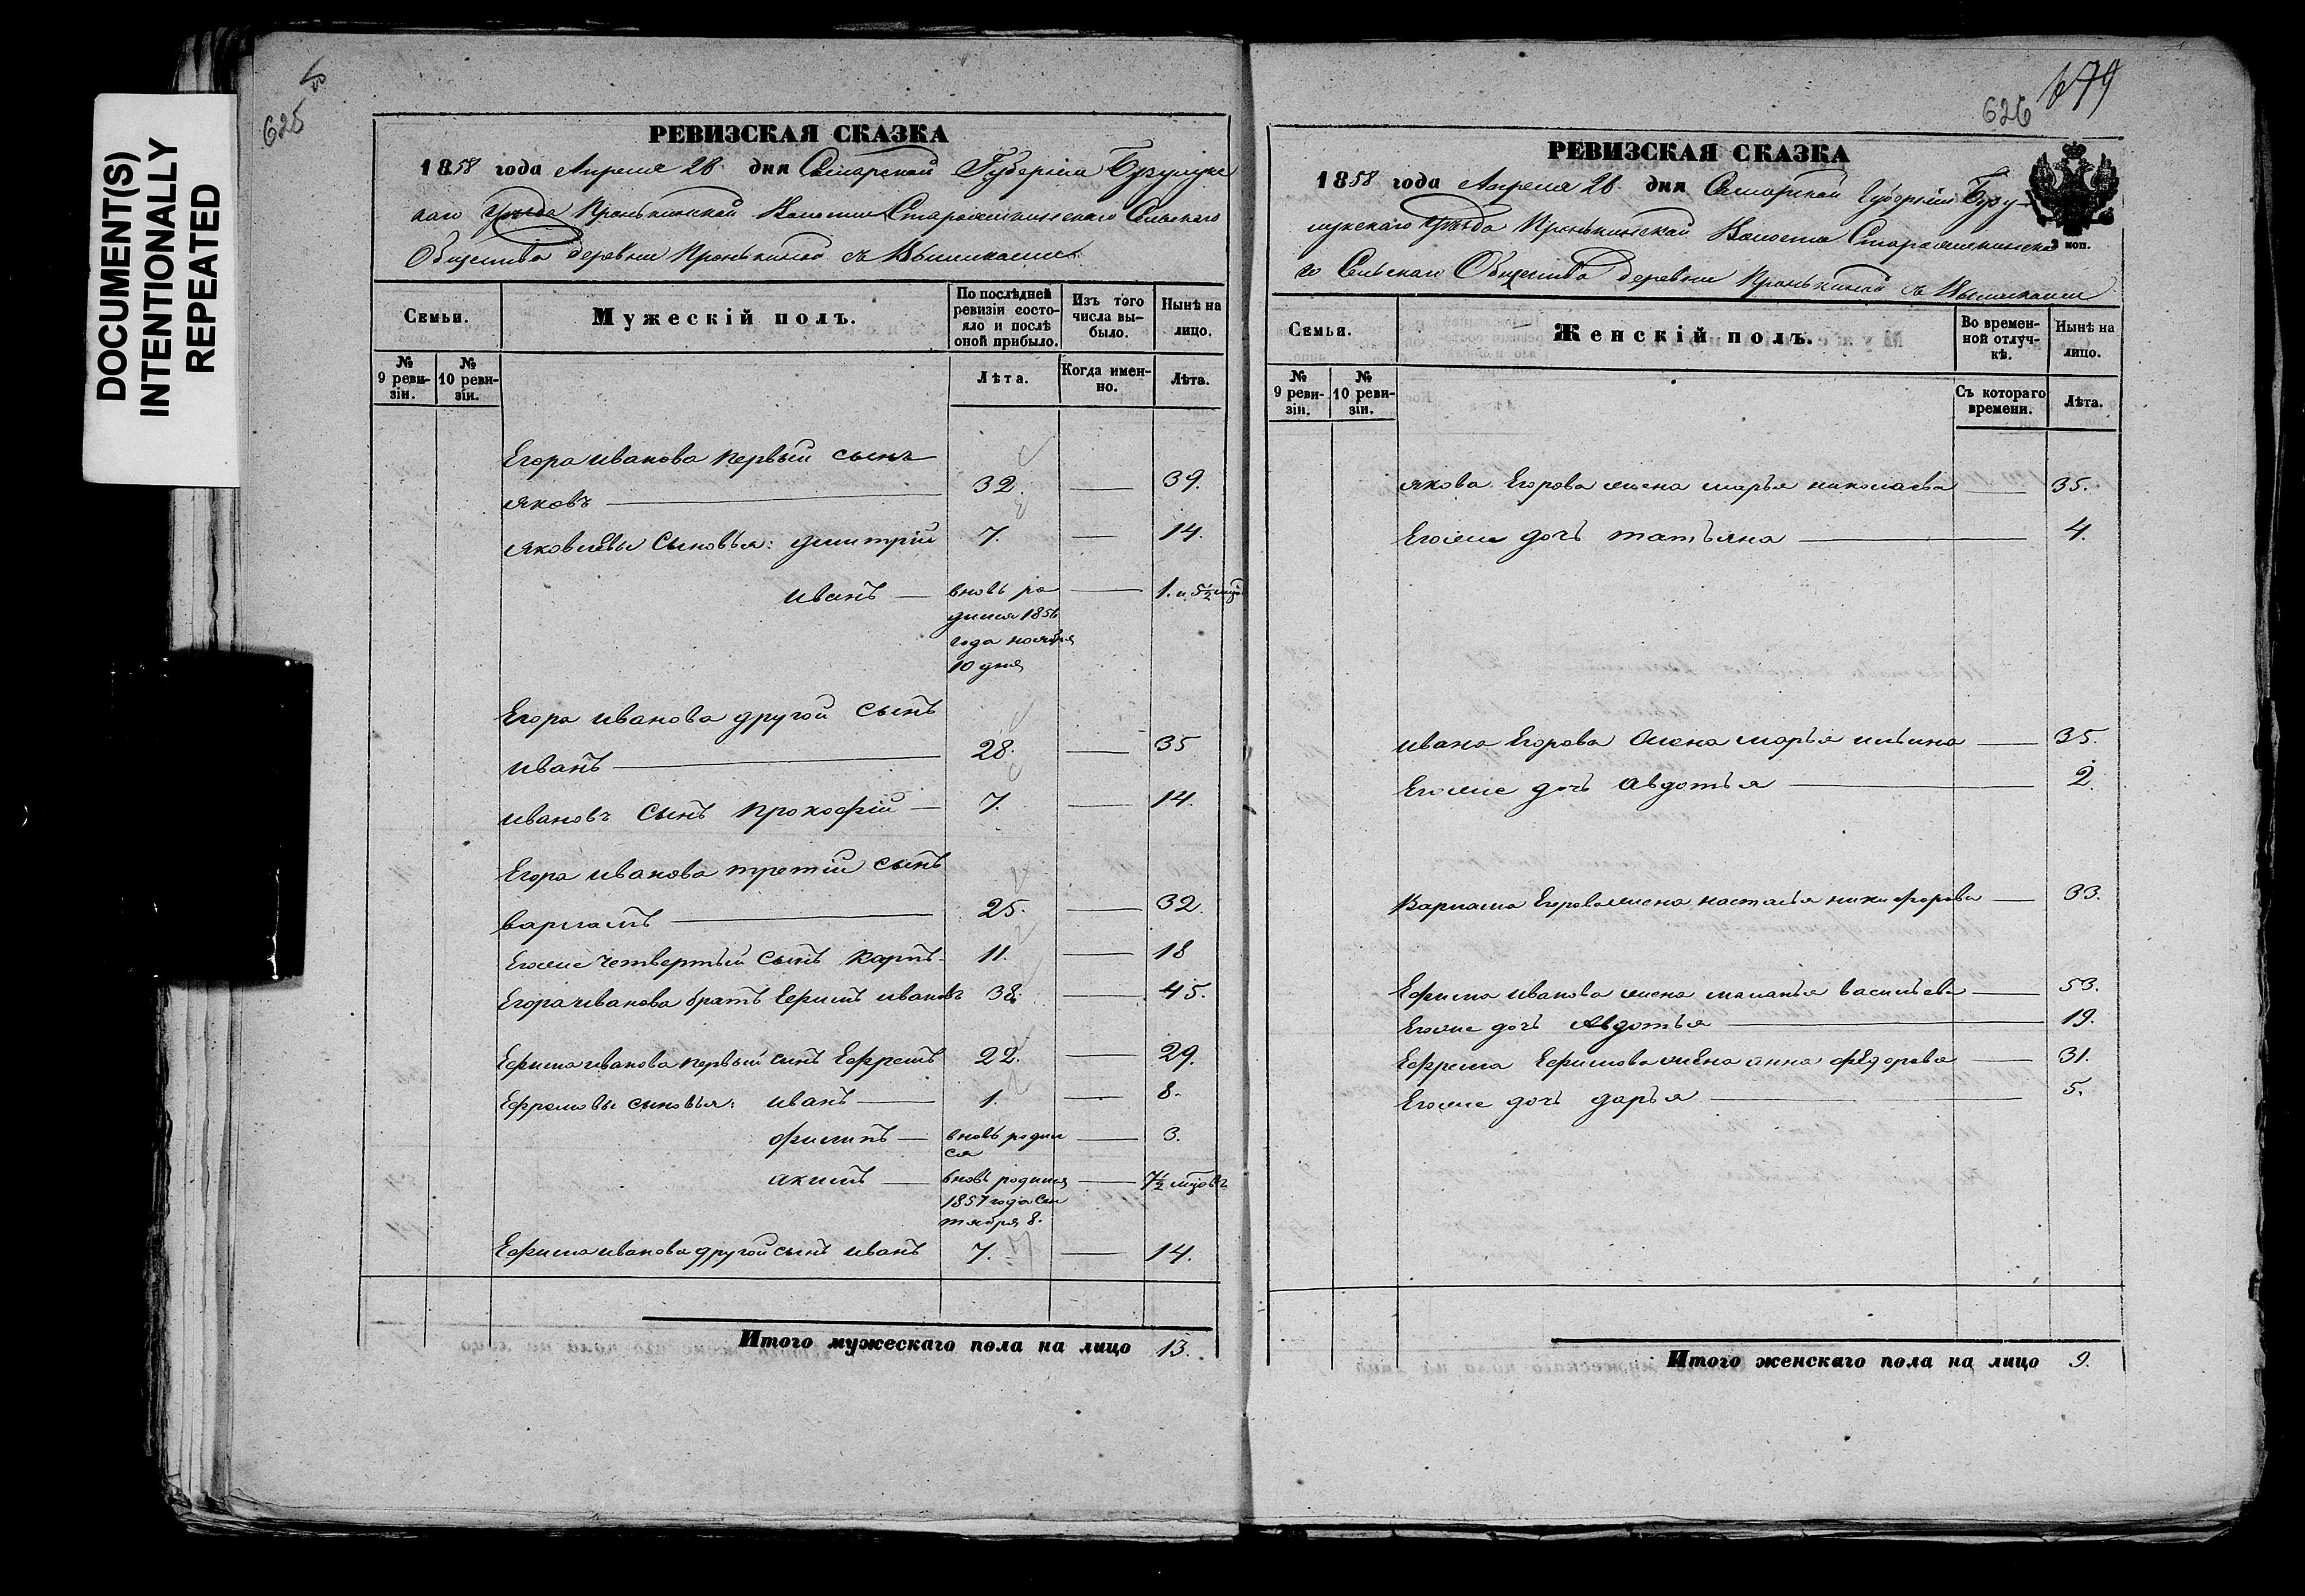 DOCUMENT(S)
INTENTIONALLY
REPEATED
625
РЕВИЗСКАЯ СКАЗКА
1858 года Апреля 28 дня Самарской Губерніи Бузулукс
каго Уѣзда Пронькинской Волости Староашкинскаго Сельскаго
Общества деревни Пронькиной съ Выселками
Семьи.
Мужескій полъ.
По послѣдней ревизіи состояло и послѣ оной прибыло.
Изъ того числа выбыло.
Нынѣ на лицо.
№ 9 ревизіи.
№ 10 ревизіи.
Лѣта.
Когда именно.
Лѣта.
Егора иванова первый сынъ
яковъ — 32. — 39.
яковлевы Сыновья: дмитрій 7. — 14.
иванъ — вновь ро — 1. и 5½ мцов
дился 1856
года ноября
10 дня
Егора иванова другой сынъ
иванъ — 28. — 35
ивановъ Сынъ прокофій — 7. — 14.
Егора иванова третій сынъ
варламъ — 25. — 32.
Егоже четвертый Сынъ карпъ - 11. — 18
Егора иванова братъ Ефимъ ивановъ 38. — 45.
Ефима иванова первый сынъ Ефремъ 22. — 29.
Ефремовы сыновья: иванъ — 1. — 8.
филипъ — вновь родил — 3.
ся
акимъ — вновь родился — 7½ мцовъ
1857 года Сен
тября 8.
Ефима иванова другой сынъ иванъ 7. — 14.
Итого мужескаго пола на лицо 13.
626 679
РЕВИЗСКАЯ СКАЗКА
1858 года Апреля 28 дня Самарской Губерніи Бузу-
лукскаго Уѣзда Пронькинской Волости Староашкинска
го Сельскаго Общества деревни Пронькиной съ Выселками
3 коп.
Семьи.
Женскій полъ.
Во временной отлучкѣ.
Нынѣ на лицо.
№ 9 ревизіи.
№ 10 ревизіи.
Съ котораго времени.
Лѣта.
якова Егорова жена марья николаева — 35.
Егоже дочь татьяна — 4.
ивана Егорова жена марья ильина — 35.
Егоже дочь авдотья — 2.
Варлама Егорова жена настасья никифорова — 33.
Ефима иванова жена маланья васильева — 53.
Егоже дочь авдотья — 19.
Ефрема Ефимова жена анна федорова — 31.
Егоже дочь дарья — 5.
Итого женскаго пола на лицо 9.